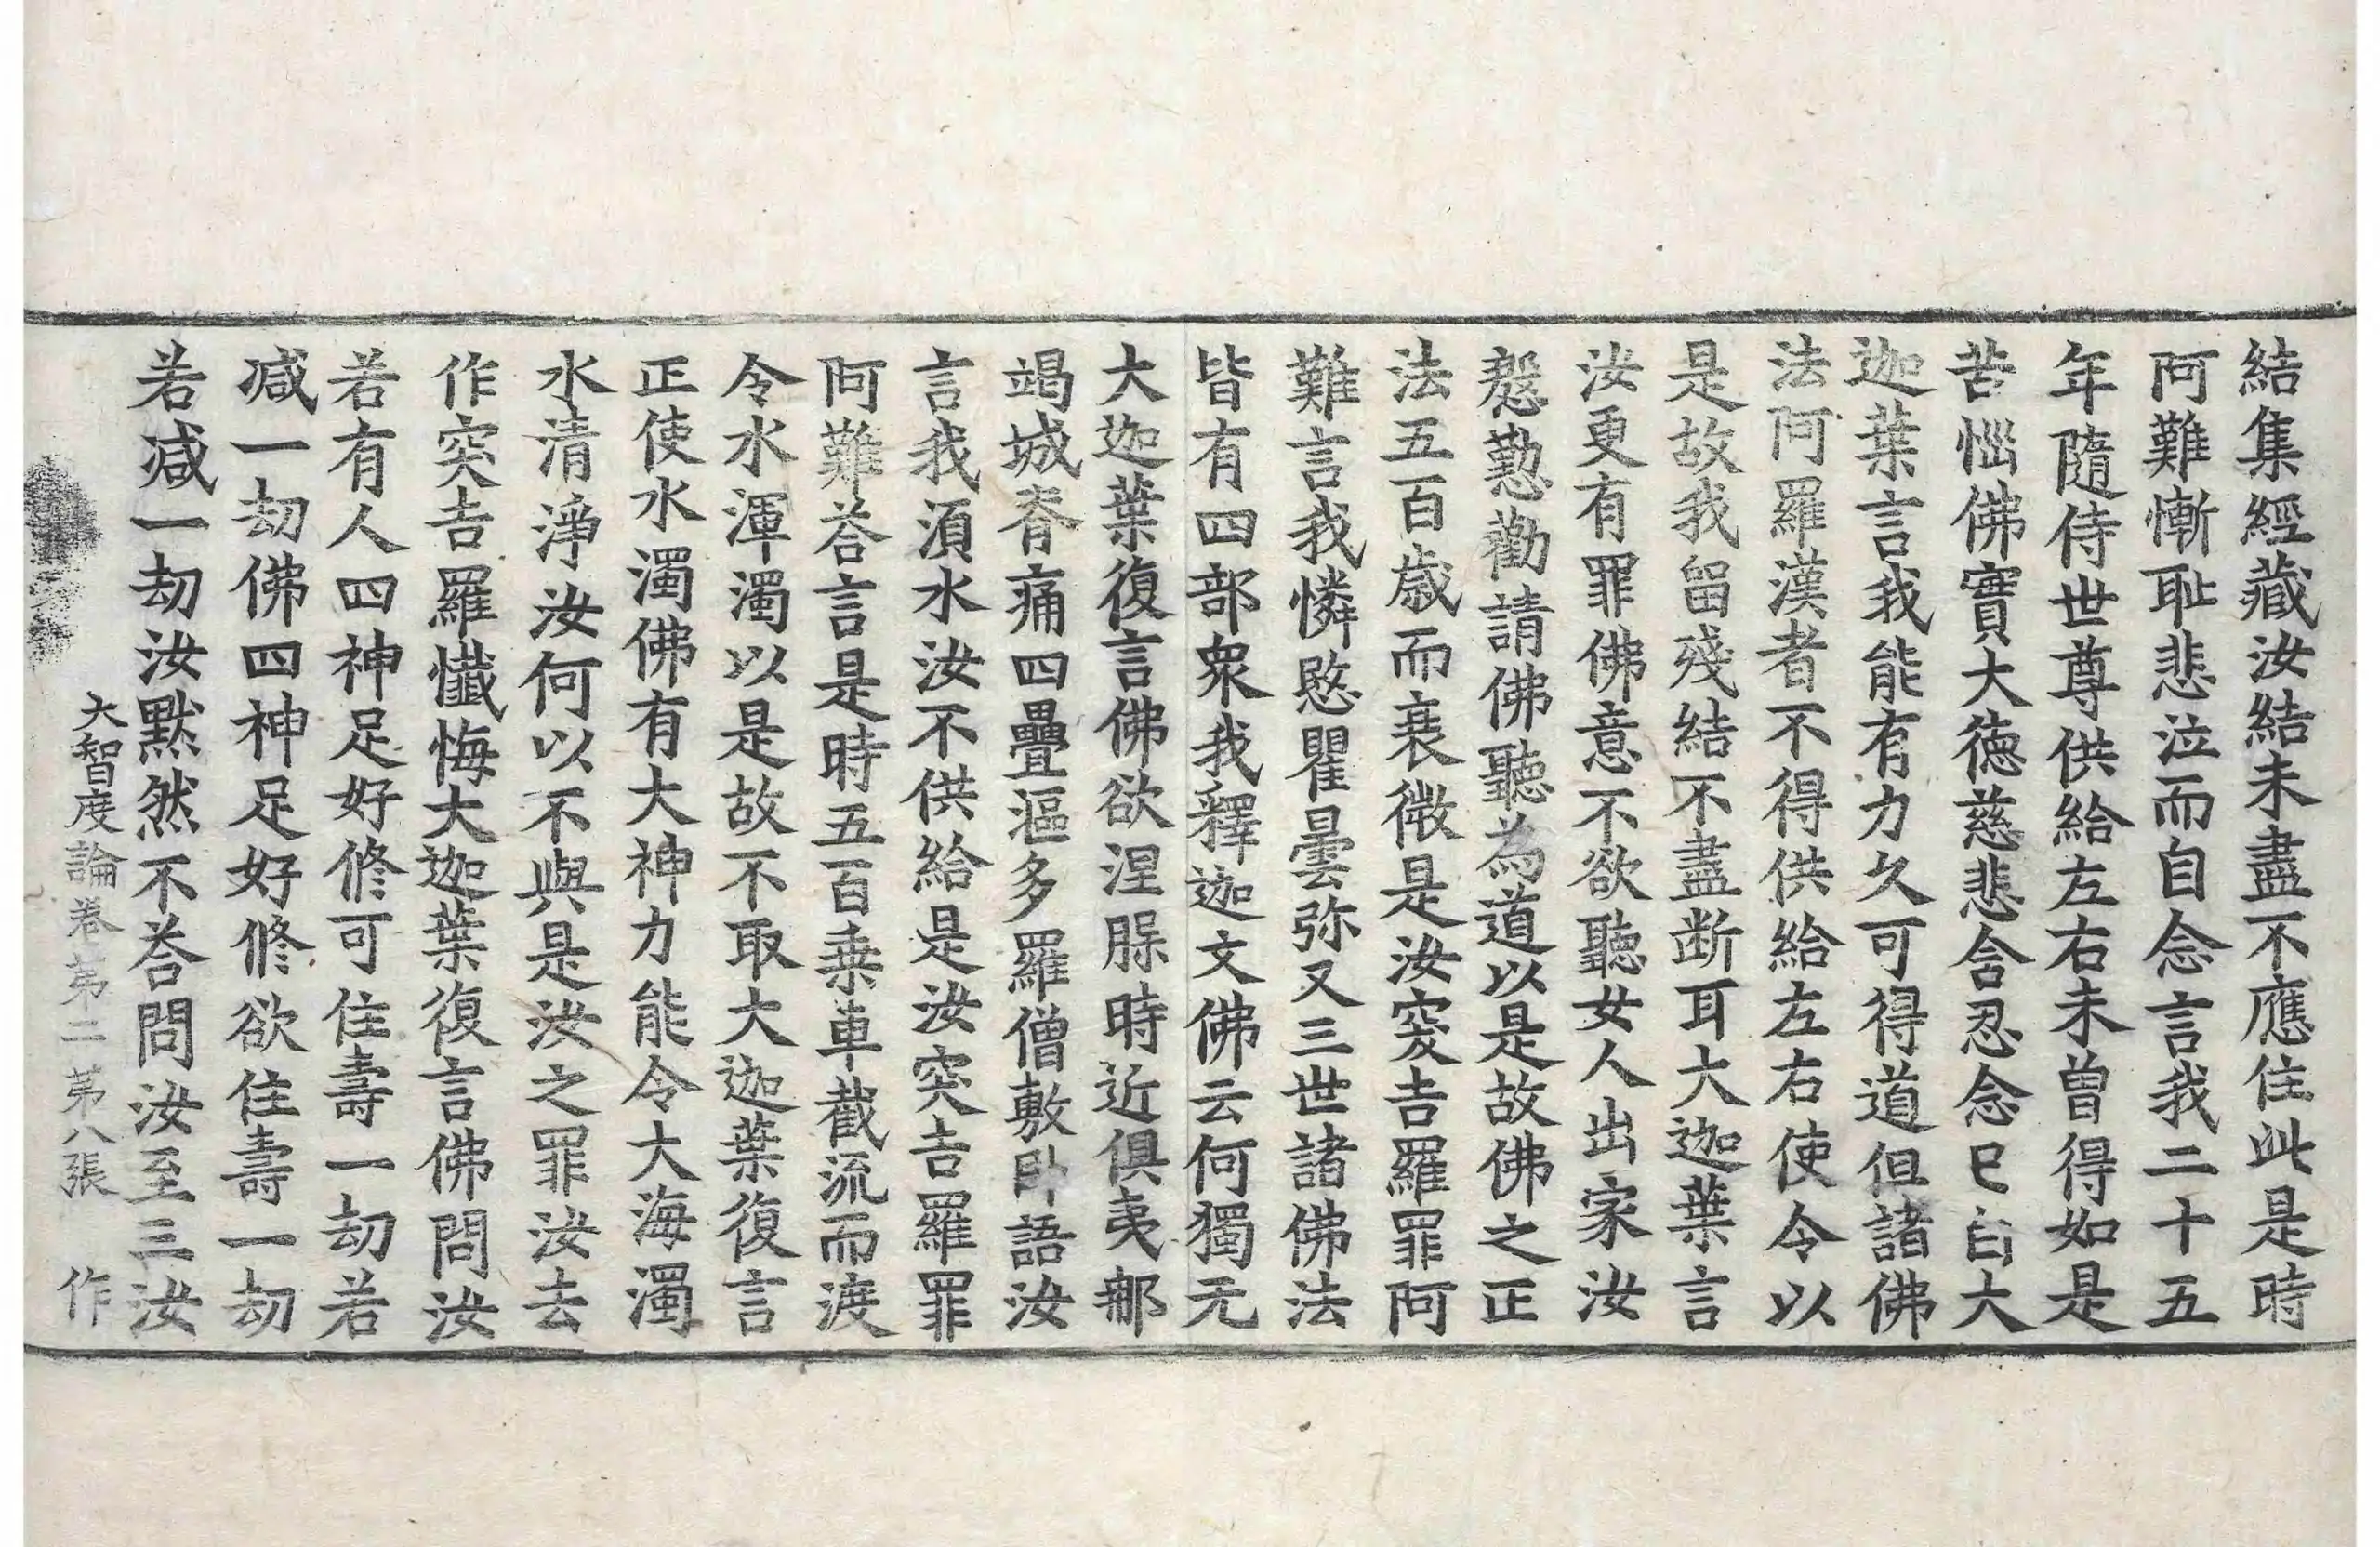 結集經藏汝結未盡不應住此是時
阿難慚耻悲泣而自念言我二十五
年隨侍世尊供給左右未曾得如是
苦惱佛實大德慈悲含忍念已白大
迦葉言我能有力久可得道但諸佛
法阿羅漢者不得供給左右使令以
是故我留殘結不盡断耳大迦葉言
汝更有罪佛意不欲聽女人出家汝
慇懃勸請佛聽為道以是故佛之正
法五百歳而衰微是汝突吉羅罪阿
難言我憐愍瞿曇弥又三世諸佛法
皆有四部衆我釋迦文佛云何獨无
大迦葉復言佛欲涅脵時近俱夷郍
竭城脊痛四疊漚多羅僧敷卧語汝
言我湏水汝不供給是汝突吉羅罪
阿難荅言是時五百乗車截流而渡
令水渾濁以是故不取大迦葉復言
正使水濁佛有大神力能令大海濁
水清淨汝何以不與是汝之罪汝去
作突吉羅懺悔大迦葉復言佛問汝
若有人四神足好修可住壽一劫若
减一劫佛四神足好修欲住壽一劫
若减一劫汝黙然不荅問汝至三汝
大智度論卷第二 第八張 作